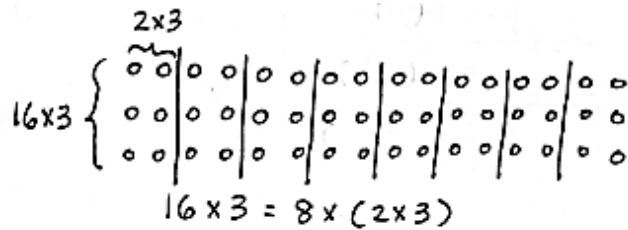 2×3
16×3
16×3 = 8×(2×3)